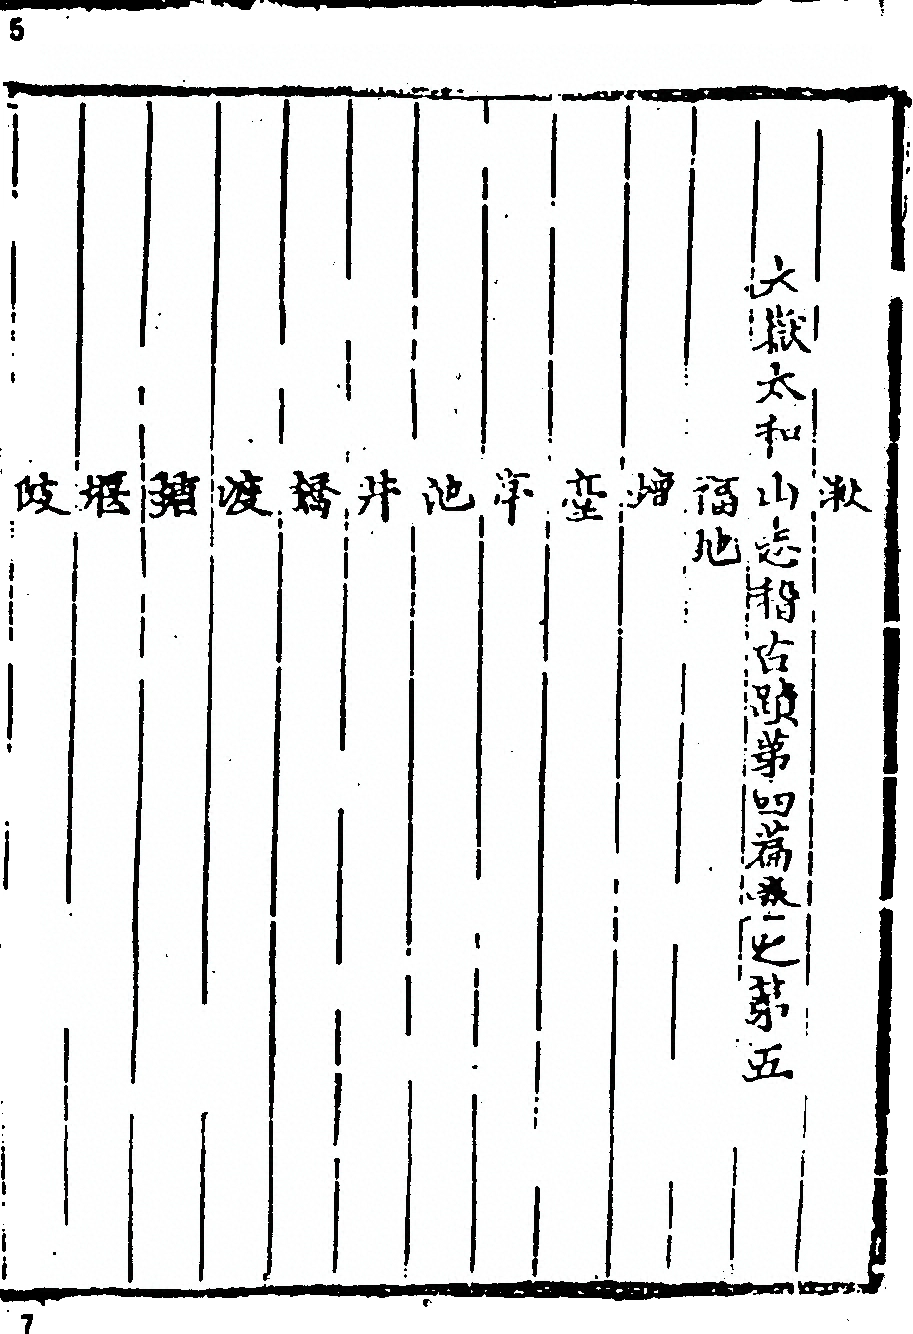 5
湫
大嶽太和山志稽古蹟第四篇卷之第五
福地
壇
臺
亭
池
井
橋
渡
豬
堰
歧
7